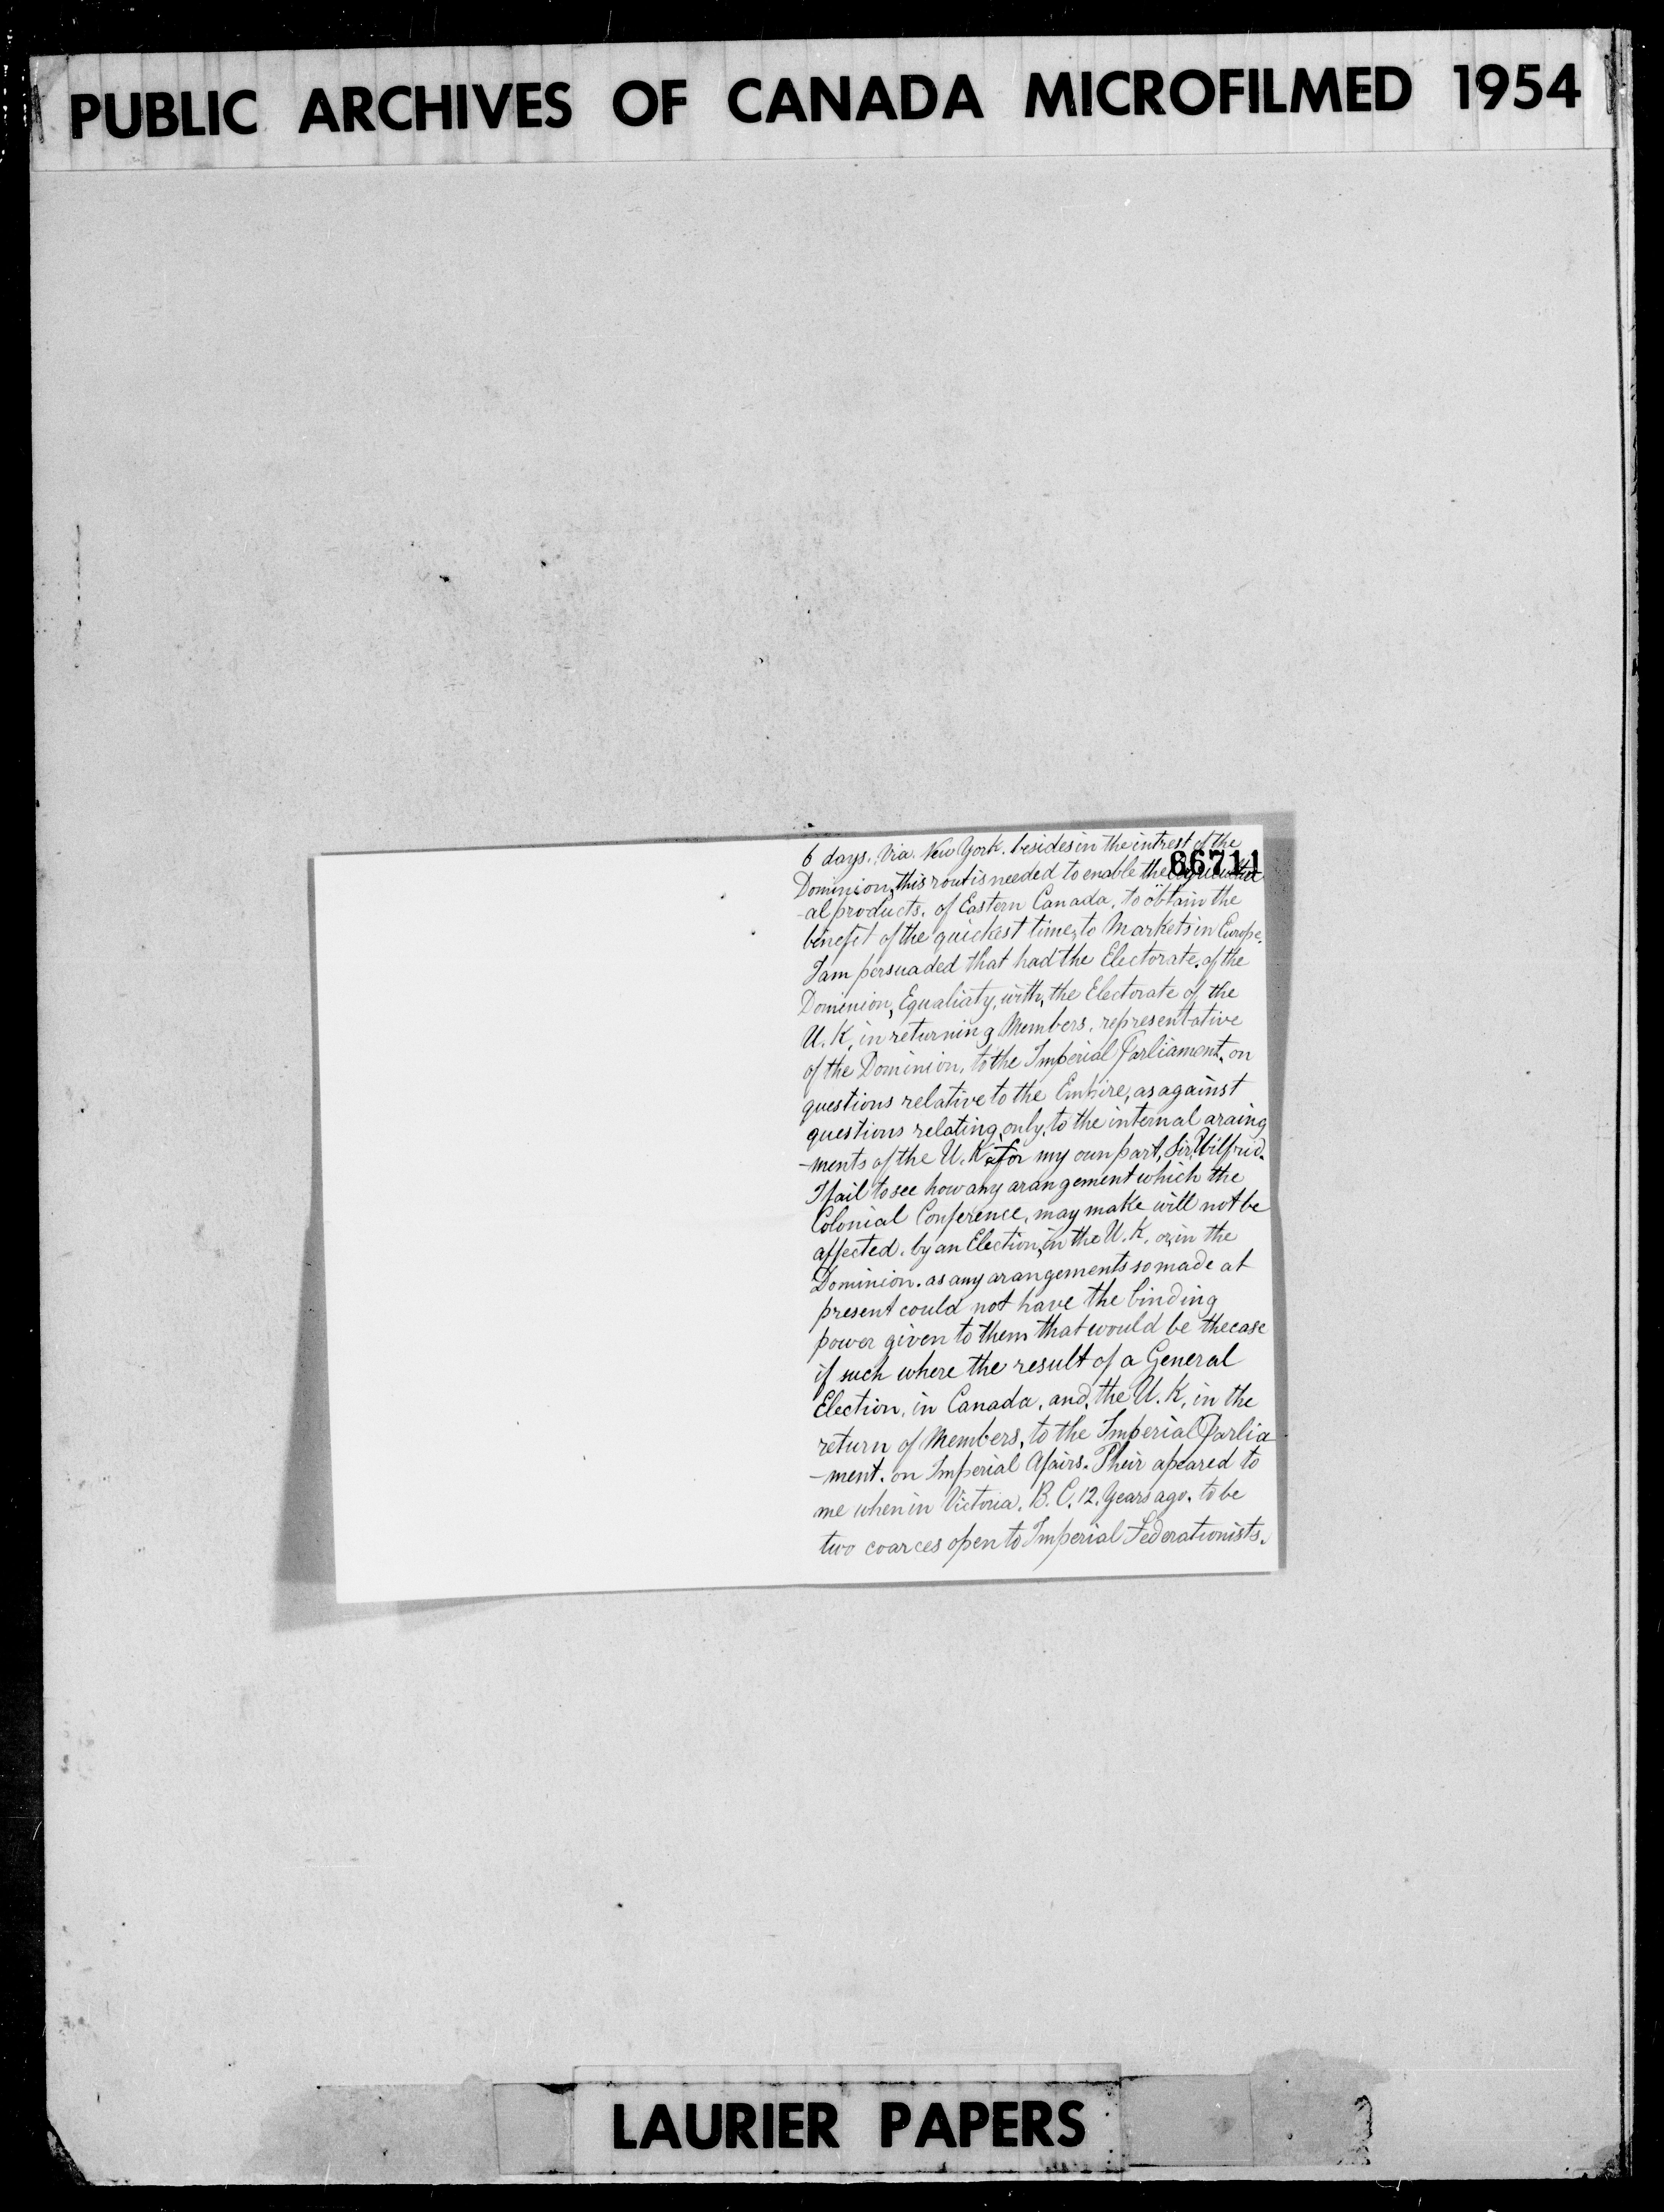 PUBLIC ARCHIVES OF CANADA MICROFILMED 1954
6 days. Via. New York. besides in the intrest of the
86711
Dominion, this rout is needed to enable the
-al products. of Eastern Canada, to obtain the
benefit of the quickest time, to Markets in Europe.
I am persuaded that had the Electorate. of the
Dominion, Equaliaty, with, the Electorate of the
U. K, in returning Members, representative
of the Dominion, to the Imperial Parliament, on
questions relative to the Empire, as against
questions relating, only, to the internal araing
-ments of the U. K for my own part, Sir, Wilfrid.
I fail to see how any arangement which the
Colonial Conference, may make will not be
affected. by an Election, in the U. K, or, in the
Dominion. as any arangements so made at
present could not have the binding
power given to them that would be the case
if such where the result of a General
Election, in Canada, and, the U. K, in the
return of Members, to the Imperial Parlia
-ment. on Imperial Afairs. Their apeared to
me when in Victoria, B. C. 12. Years ago. to be
two coarces open to Imperial Federationists.
LAURIER PAPERS